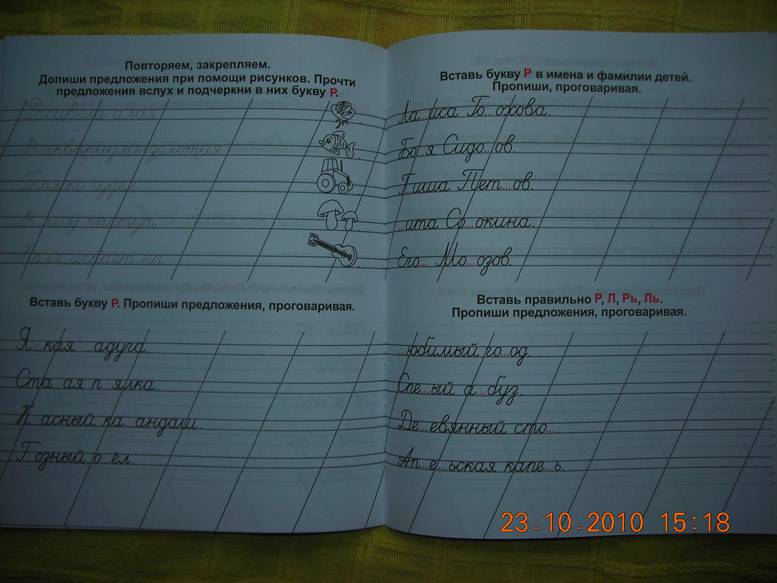 Повторяем, закрепляем.
Допиши предложения при помощи рисунков. Прочти
предложения вслух и подчеркни в них букву Р.
Вставь букву Р. Пропиши предложения, проговаривая.
Я кая адуга.
Ста ая п ялка.
К асный ка андаш.
Г озный о ел.
Вставь букву Р в имена и фамилии детей.
Пропиши, проговаривая.
Ла...иса Го...охова.
Бо...я Сидо...ов.
...иша Пет...ов.
...ита Со...окина.
Его... Мо...озов.
Вставь правильно Р, Л, Рь, Ль.
Пропиши предложения, проговаривая.
...юбимый го...од.
Спе...ый а...буз.
Де...евянный сто...
Ап...е...ьская капе...ь.
23.10.2010 15:18